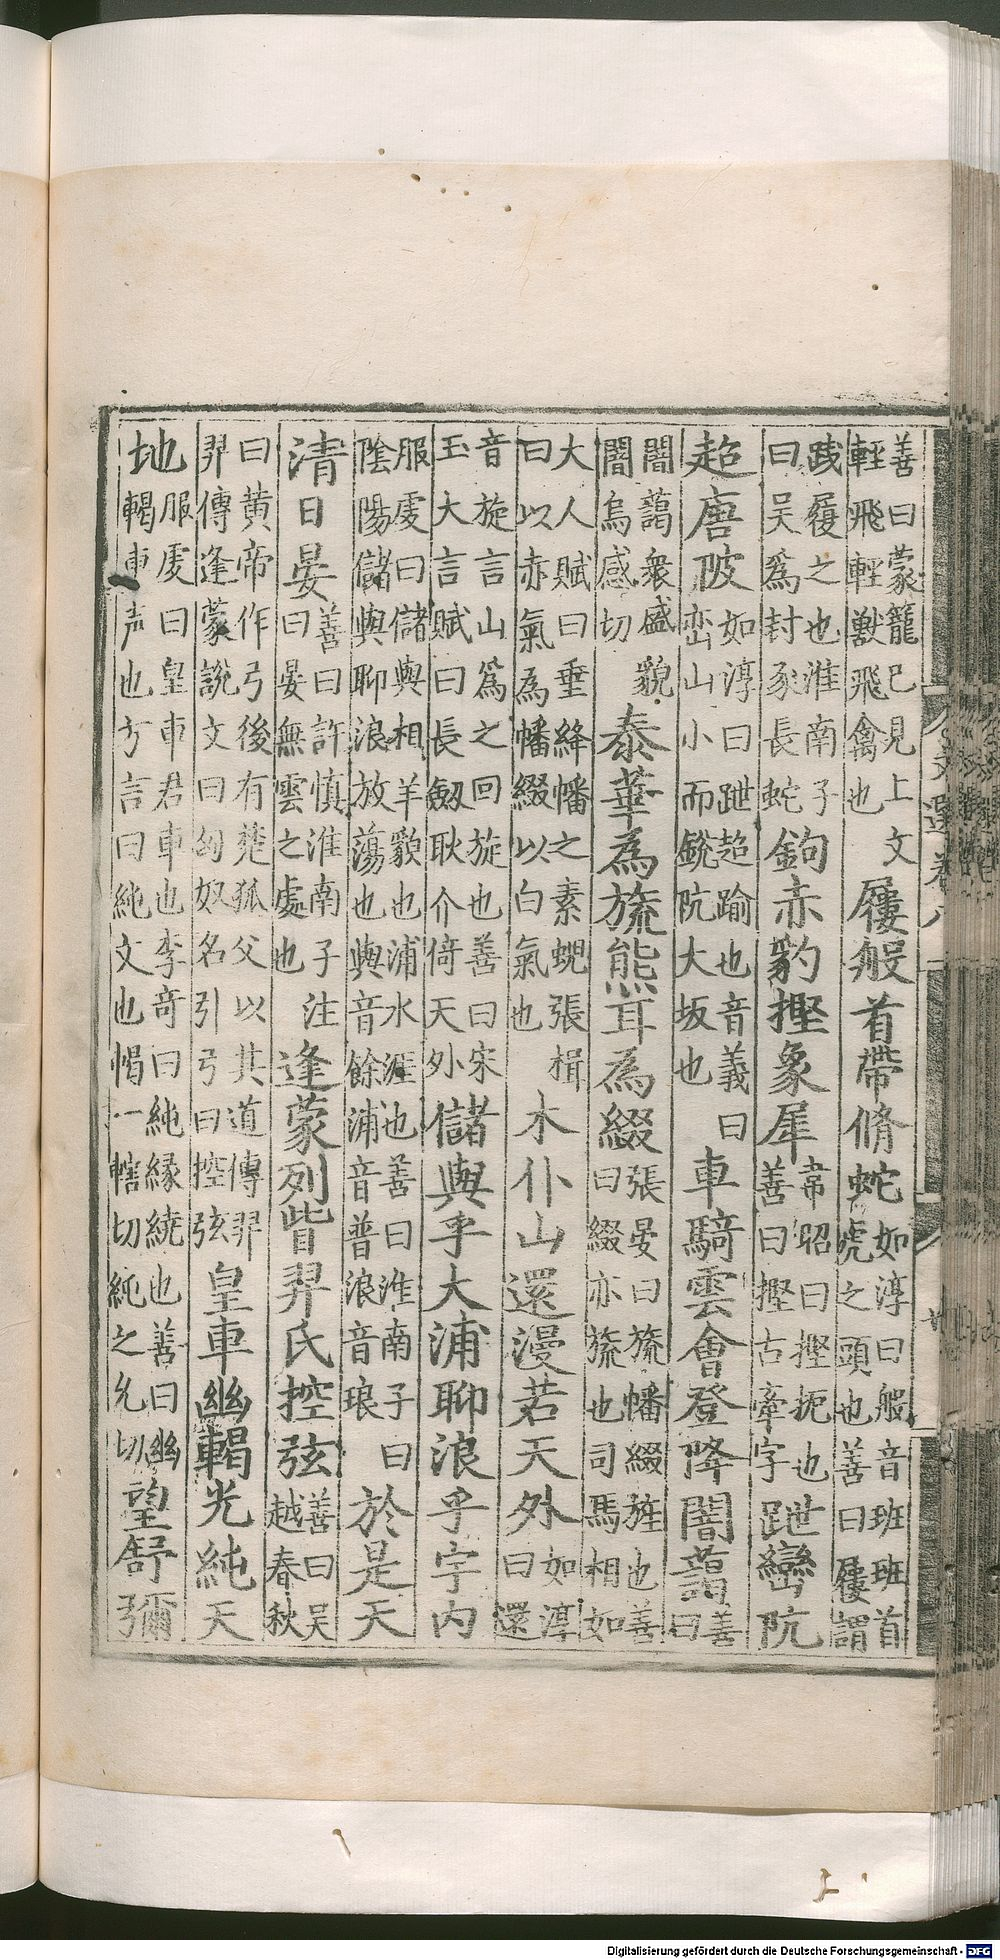 善曰蒙籠已見上文
輕飛輕獸飛禽也
屨般首帶脩蛇
如淳曰般音班班首
虎之頭也善曰屨謂
踐履之也淮南子
曰吳爲封豕長蛇
鉤赤豹摼象犀
韋昭曰摼扼也
善曰摼古牽字
跇巒阬
超唐陂
如淳曰跇超踰也音義曰
巒山小而銳阬大坂也
車騎雲會登降闇藹
善曰
闇藹衆盛貌
闇烏感切
泰華為旒熊耳為綴
張晏曰旒幡綴旌也善
曰綴亦旒也司馬相如
大人賦曰垂絳幡之素蜺張揖
曰以赤氣為幡綴以白氣也
木仆山還漫若天外
如淳曰還
音旋言山爲之回旋也善曰宋
玉大言賦曰長劔耿介倚天外
儲與乎大浦聊浪乎宇內
服虔曰儲與相羊貌也浦水涯也善曰淮南子曰
陰陽儲與聊浪放蕩也與音餘浦音普浪音琅
於是天
清日晏
善曰許慎淮南子注
曰晏無雲之處也
逢蒙列眥羿氏控弦
善曰吳
越春秋
曰黃帝作弓後有楚狐父以其道傳羿
羿傳逢蒙說文曰匈奴名引弓曰控弦
皇車幽輵光純天
地
服虔曰皇車君車也李奇曰純緣繞也善曰幽
輵車声也方言曰純文也㡇一轄切純之允切
望舒彌
文選卷八
Digitalisierung gefördert durch die Deutsche Forschungsgemeinschaft - DFG